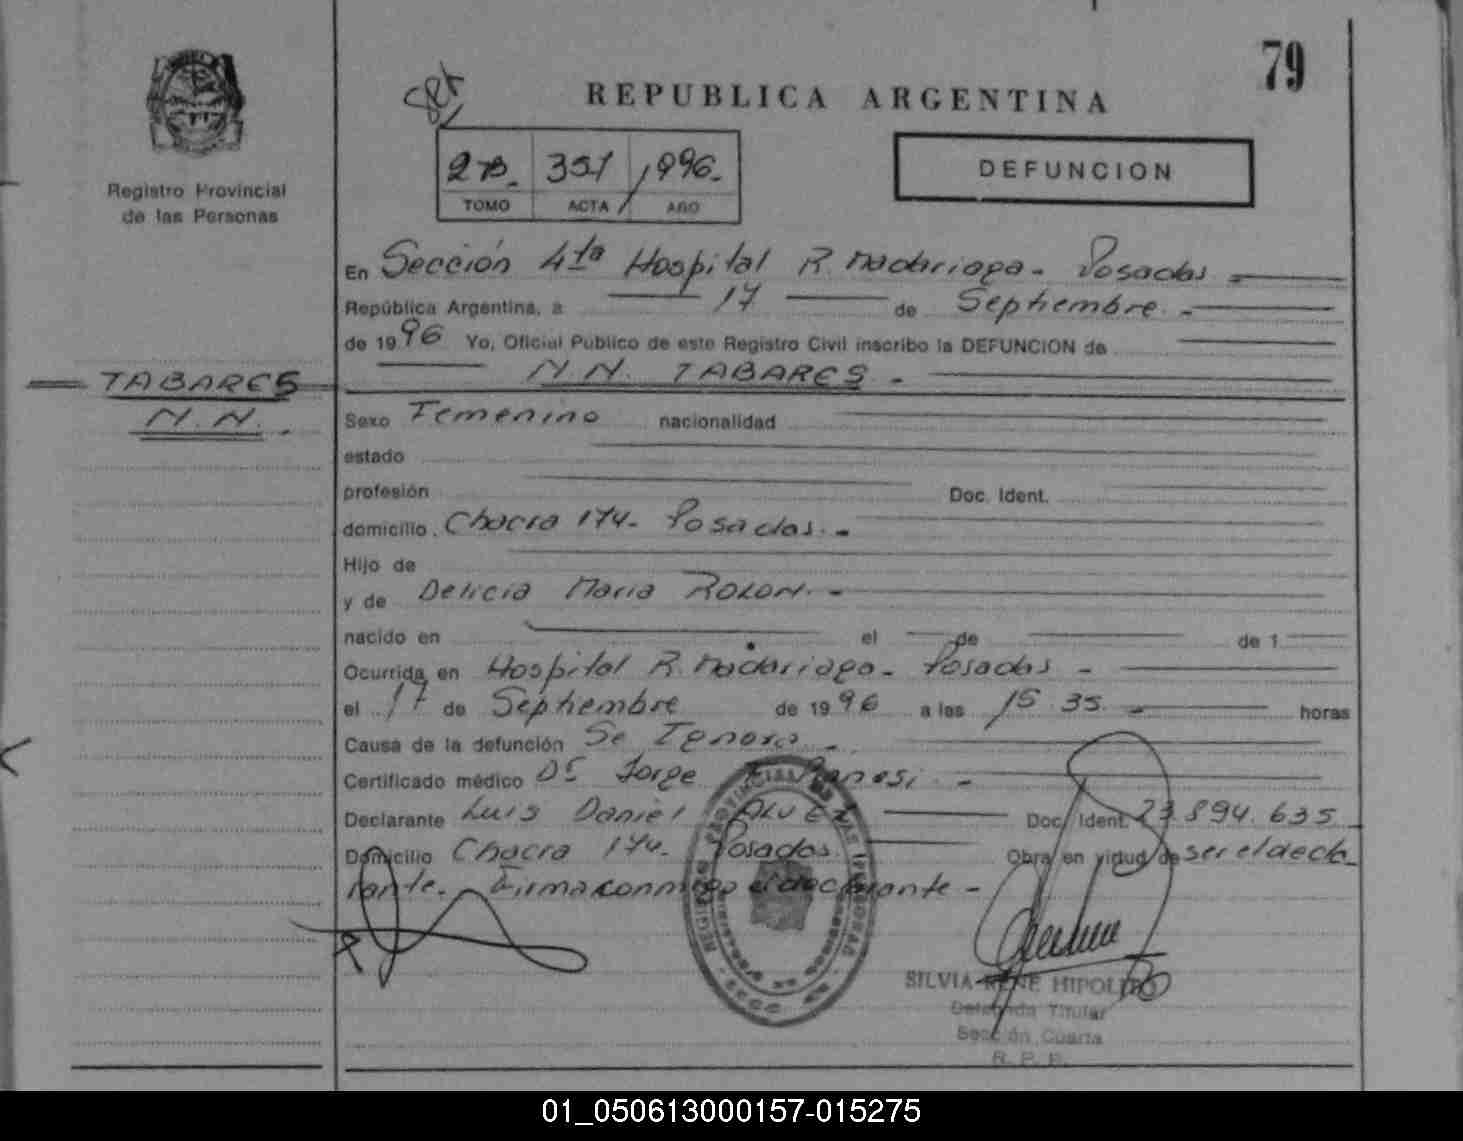 79
REPUBLICA ARGENTINA
DEFUNCION
Registro Provincial
de las Personas
351 1996.
TOMO ACTA AÑO
En Sección 4ta Hospital R. Madariaga - Posadas
República Argentina, a 17 de Septiembre.
de 1996 Yo, Oficial Público de este Registro Civil inscribo la DEFUNCION de
N.N. TABARES. -
TABARES
N.N.
Sexo Femenino nacionalidad
estado
profesión Doc. Ident.
domicilio. Chacra 174. Posadas. -
Hijo de
y de Delicia Maria ROLON. -
nacido en el de de 1
Ocurrida en Hospital R. Madariaga - Posadas -
el 17 de Septiembre de 1996 a las 15.35. horas
Causa de la defunción Se Ignora -
Certificado médico Dr Jorge
Declarante Luis Daniel ALVEZ Doc. Ident. 23.894.635
Domicilio Chacra 174. Posadas. Obra en virtud de ser el decla
rante. Firma conmigo el declarante -
SILVIA RENE HIPOLITO
Delegada Titular
Sección Cuarta
R. P. P.
01_050613000157-015275